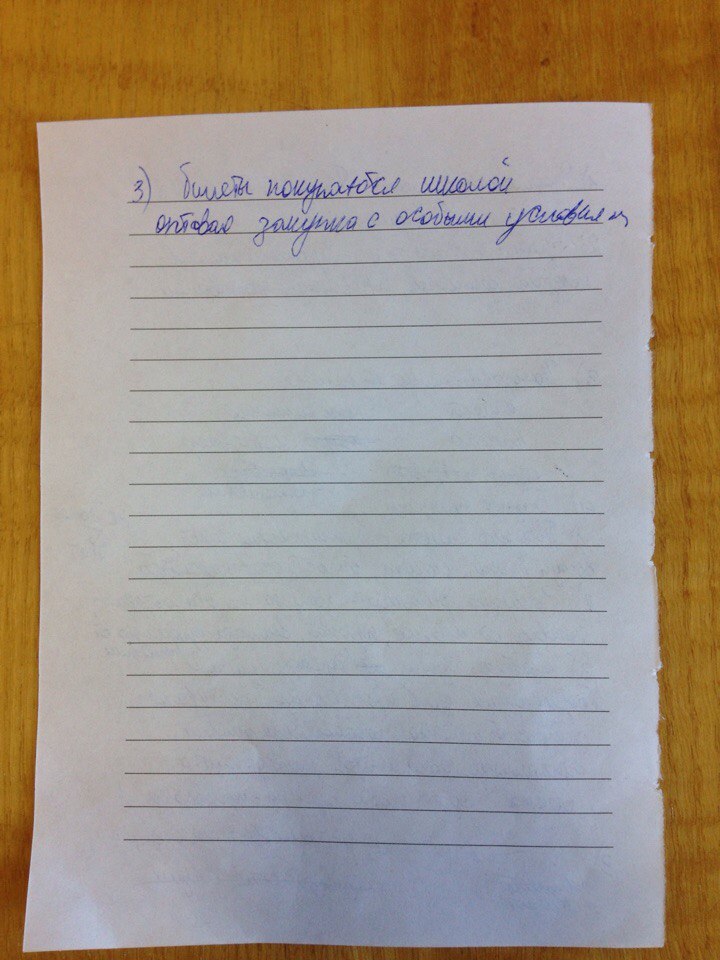 3) Билеты покупаются школой
оптовая закупка с особыми условиям